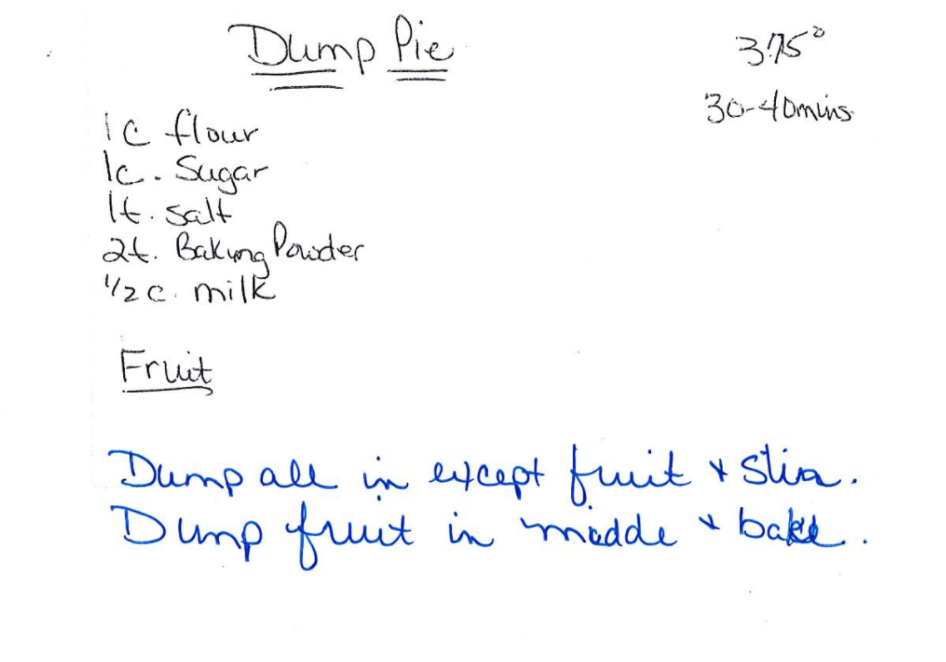 Dump Pie
375°
30-40mins
1c flour
1c. Sugar
1t. salt
2t. Baking Powder
1/2 c. milk
Fruit
Dump all in except fruit & stir.
Dump fruit in middle & bake.